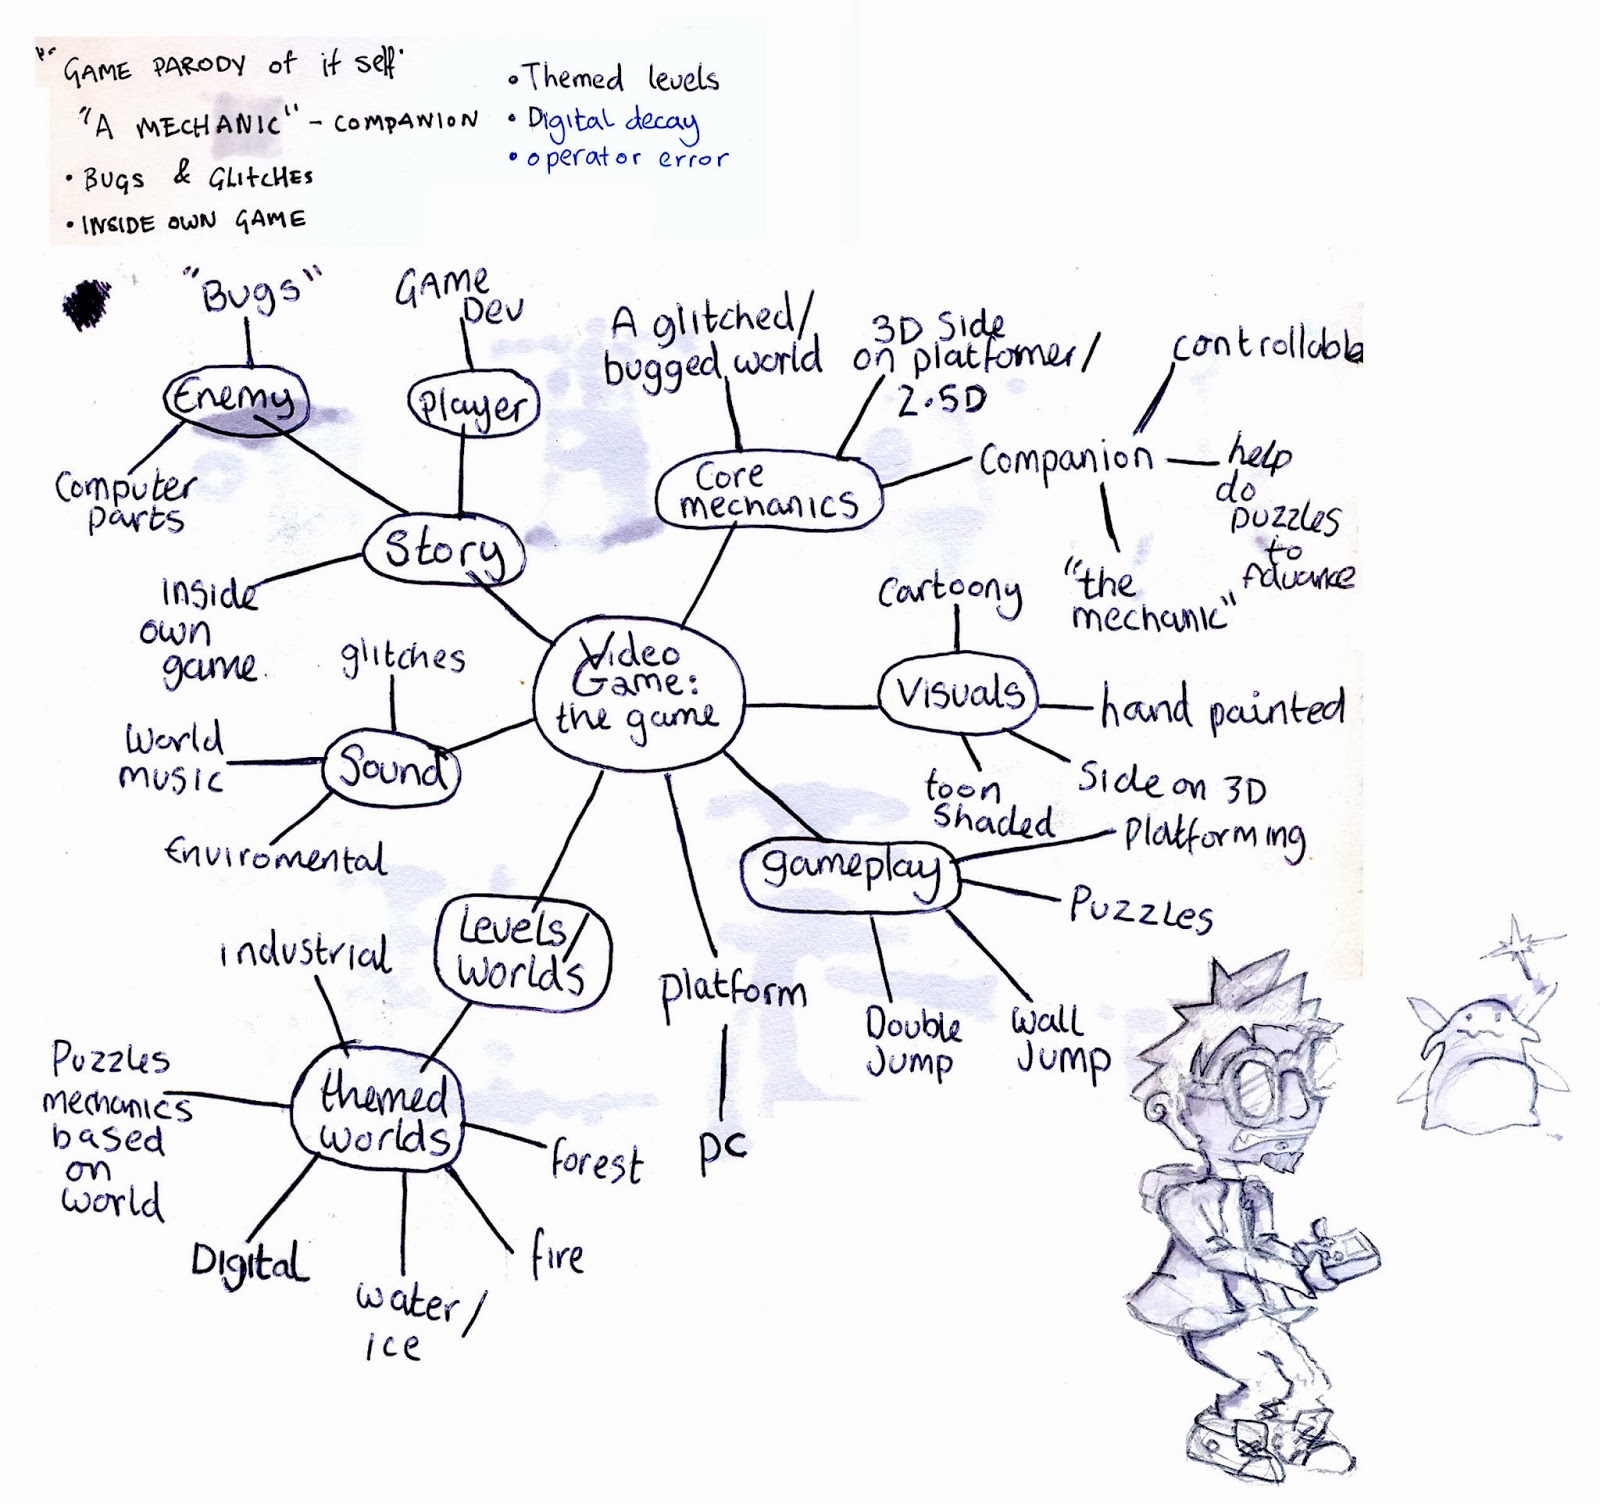 "GAME PARODY of it self"
"A MECHANIC" - COMPANION
• BUGS & GLITCHES
• INSIDE OWN GAME
• Themed levels
• Digital decay
• operator error
"Bugs"
GAME
Dev
Enemy
Player
Computer
parts
Story
Inside
own
game.
A glitched/
bugged world
3D Side
on platformer/
2.5D
controllable
Core
mechanics
Companion
help
do
puzzles
to
Advance
"the
mechanic"
Video
Game:
the game
Cartoony
Visuals
hand painted
Side on 3D
toon
shaded
glitches
World
music
Sound
Enviromental
gameplay
Platforming
Puzzles
Double
Jump
Wall
Jump
Levels/
Worlds
platform
PC
industrial
themed
worlds
Puzzles
mechanics
based
on
world
Digital
water/
ice
fire
forest